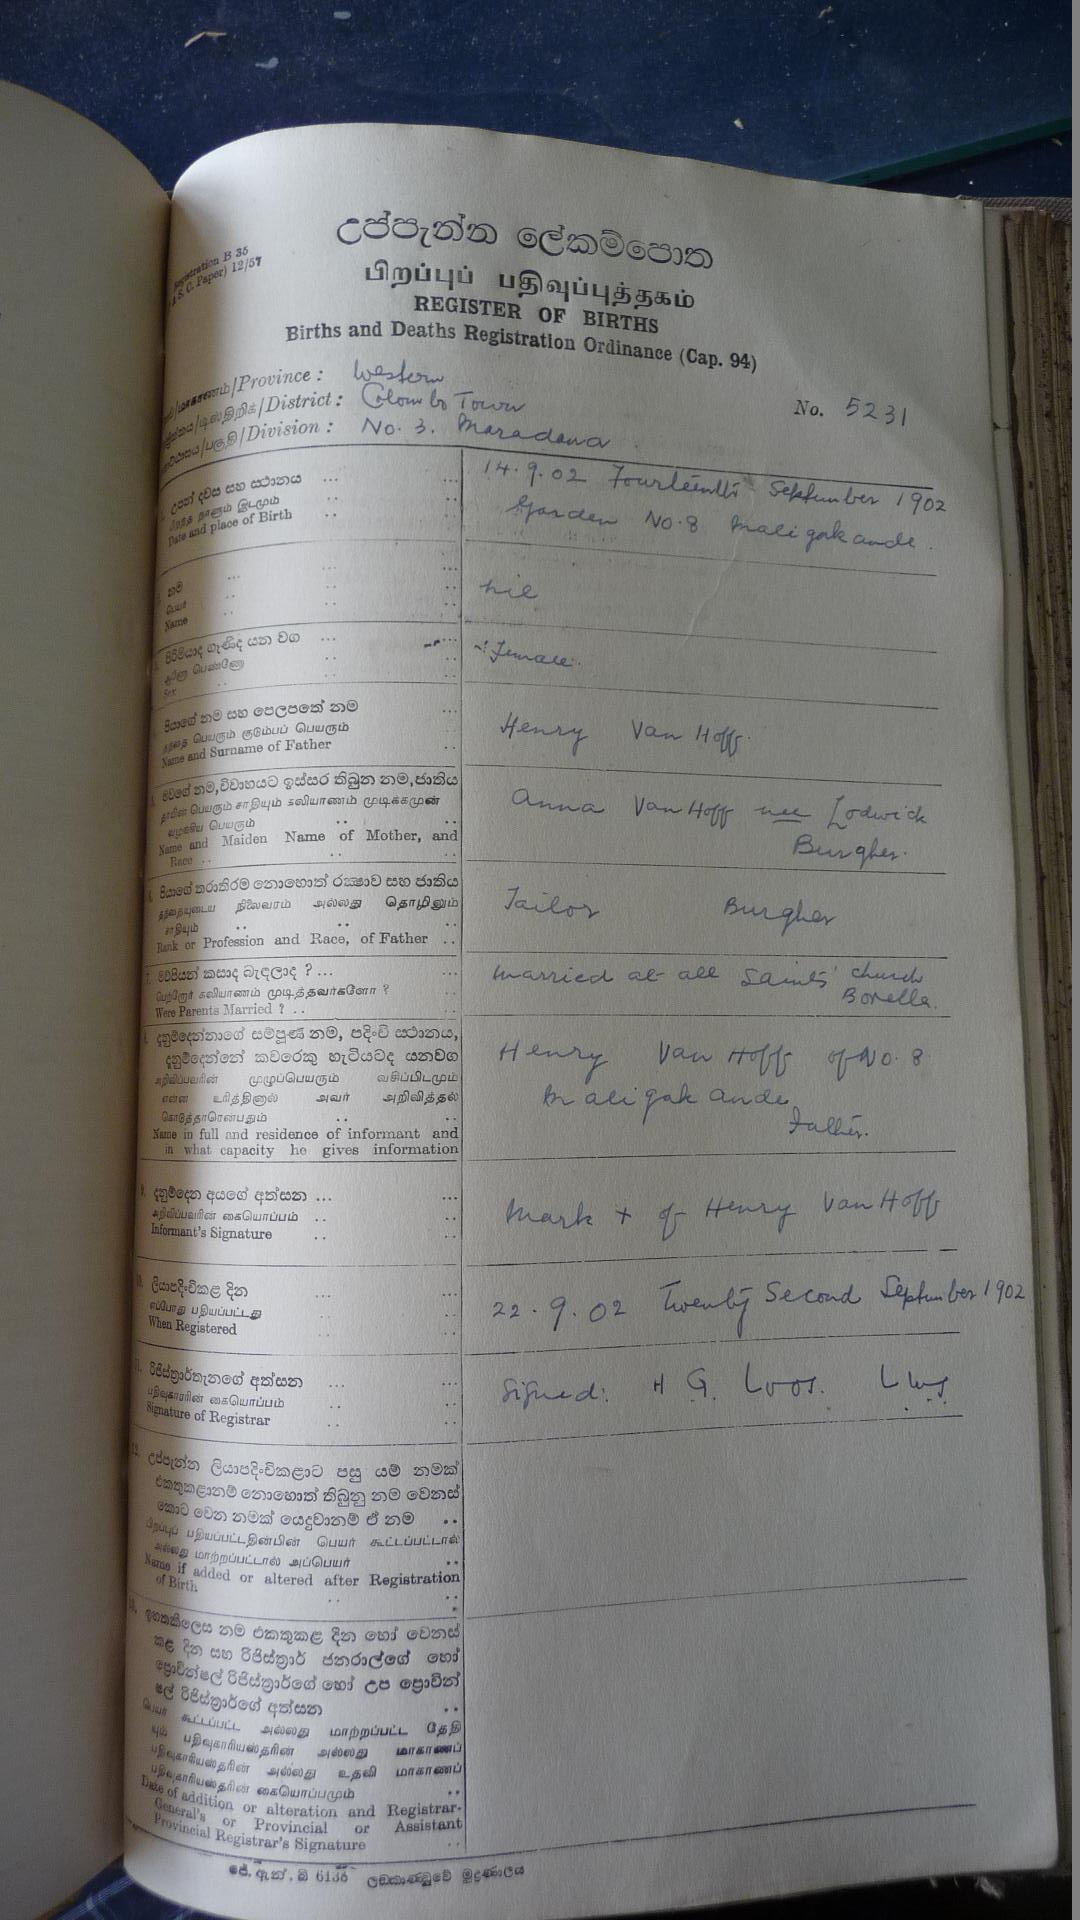 Registration B 35
(A. S. C. Paper) 12/57
උප්පැන්න ලේකම්පොත
பிறப்புப் பதிவுப்புத்தகம்
REGISTER OF BIRTHS
Births and Deaths Registration Ordinance (Cap. 94)
/மாகாணம்/Province : Western
/டிஸ்திறிக்/District : Colombo Town
No. 5231
/பகுதி/Division : No. 3. Maradana
උපන් දවස සහ ස්ථානය ... ...
பிறந்த நாளும் இடமும் .. ..
Date and place of Birth .. ..
14.9.02 Fourteenth September 1902
Garden No. 8 Maligakande.
නම ... ...
பெயர் .. ..
Name .. ..
nil
පිරිමියාද ගැණිද යන වග ... ...
ஆணோ பெண்ணோ .. ..
Sex .. ..
Female.
පියාගේ නම සහ පෙලපතේ නම ...
தந்தை பெயரும் குடும்பப் பெயரும்
Name and Surname of Father ..
Henry Van Hoff.
මවගේ නම, විවාහයට ඉස්සර තිබුන නම, ජාතිය
தாயின் பெயரும் சாதியும் கலியாணம் முடிக்கமுன்
வழங்கிய பெயரும் .. ..
Name and Maiden Name of Mother, and
Race .. .. ..
Anna Van Hoff nee Lodwick
Burgher.
6. පියාගේ තරාතිරම නොහොත් රක්‍ෂාව සහ ජාතිය
தந்தையுடைய நிலைவரம் அல்லது தொழிலும்
சாதியும் .. .. ..
Rank or Profession and Race, of Father ..
Tailor Burgher
7. මව්පියන් කසාද බැඳලාද ? ... ...
பெற்றோர் கலியாணம் முடித்தவர்களோ ? ..
Were Parents Married ? .. ..
married at all Saints' church
Borella.
8. දැනුම්දෙන්නාගේ සම්පූර්‍ණ නම, පදිංචි ස්ථානය,
දැනුම්දෙන්නේ කවරෙකු හැටියටද යනවග
அறிவிப்பவரின் முழுப்பெயரும் வசிப்பிடமும்
என்ன உரித்தினால் அவர் அறிவித்தல்
கொடுத்தாரென்பதும் .. ..
Name in full and residence of informant and
in what capacity he gives information
Henry Van Hoff of No. 8
Maligakande
Father.
9. දැනුම්දෙන අයගේ අත්සන ... ...
அறிவிப்பவரின் கையொப்பம் .. ..
Informant's Signature .. ..
Mark + of Henry Van Hoff
10. ලියාපදිංචිකළ දින ... ...
எப்போது பதியப்பட்டது .. ..
When Registered .. ..
22.9.02 Twenty Second September 1902
11. රිජිස්ත්‍රාර්තැනගේ අත්සන ... ...
பதிவுகாரரின் கையொப்பம் .. ..
Signature of Registrar .. ..
Signed: H G. Loos.
12. උප්පැන්න ලියාපදිංචිකළාට පසු යම් නමක්
එකතුකළානම් නොහොත් තිබුනු නම වෙනස්
කොට වෙන නමක් යෙදුවානම් ඒ නම ..
பிறப்புப் பதியப்பட்டதின்பின் பெயர் கூட்டப்பட்டால்
அல்லது மாற்றப்பட்டால் அப்பெயர் ..
Name if added or altered after Registration
of Birth .. ..
13. ඉහතකීලෙස නම එකතුකළ දින හෝ වෙනස්
කළ දින සහ රිජිස්ත්‍රාර් ජනරාල්ගේ හෝ
ප්‍රොවින්ෂල් රිජිස්ත්‍රාර්ගේ හෝ උප ප්‍රොවින්
ෂල් රිජිස්ත්‍රාර්ගේ අත්සන ..
பெயர் கூட்டப்பட்ட அல்லது மாற்றப்பட்ட தேதி
யும் பதிவுகாரியஸ்தரின் அல்லது மாகாணப்
பதிவுகாரியஸ்தரின் அல்லது உதவி மாகாணப்
பதிவுகாரியஸ்தரின் கையொப்பமும் ..
Date of addition or alteration and Registrar-
General's or Provincial or Assistant
Provincial Registrar's Signature ..
ජේ. ඇන්. බී 6138 ලඞ්කාණ්ඩුවේ මුද්‍රණාලය